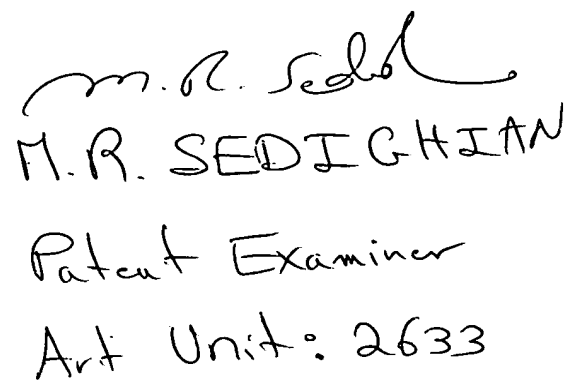 M.R. Sedid
M.R. SEDIGHIAN
Patent Examiner
Art Unit: 2633